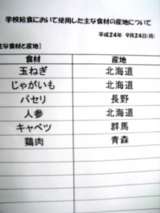 学校給食において使用した主な食材の産地について
平成24年 9月24日(月)
主な食材と産地】
食材 産地
玉ねぎ 北海道
じゃがいも 北海道
パセリ 長野
人参 北海道
キャベツ 群馬
鶏肉 青森